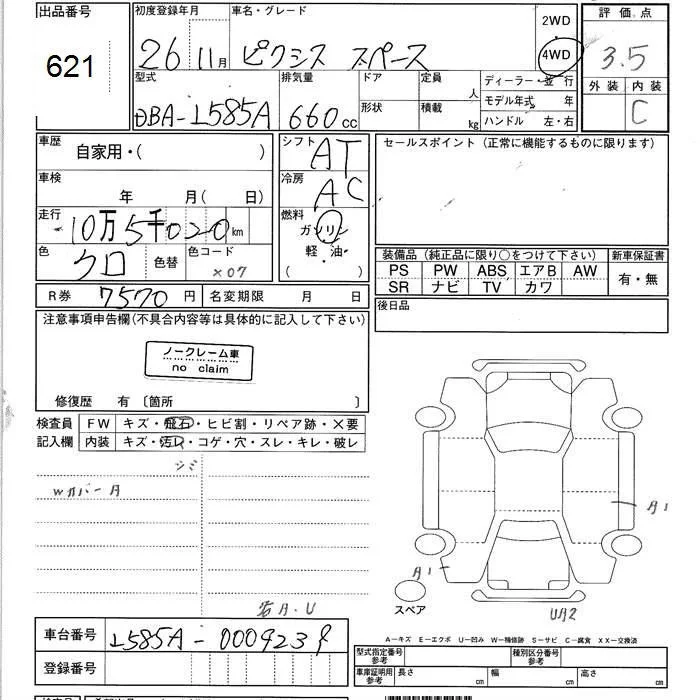 出品番号 初度登録年月 車名・グレード 2WD 評価点
621 26 11月 ピクシス スペース 4WD 3.5
外装 内装
C
型式 排気量 ドア 定員 人 ディーラー・並行
モデル年式 年
DBA-L585A 660cc 形状 積載 kg ハンドル 左・右
車歴 自家用・( ) シフト AT セールスポイント (正常に機能するものに限ります)
車検 年 月( 日) 冷房 AC
走行 10万5千020km 燃料 ガソリン
軽・油
( )
色 クロ 色替 色コード X07
装備品 (純正品に限り○をつけて下さい) 新車保証書
PS PW ABS エアB AW 有・無
SR ナビ TV カワ
R券 7570円 名変期限 月 日 後日品
注意事項申告欄(不具合内容等は具体的に記入して下さい)
ノークレーム車
no claim
修復歴 有 〔箇所 〕
検査員 FW キズ・飛石・ヒビ割・リペア跡・×要
記入欄 内装 キズ・汚レ・コゲ・穴・スレ・キレ・破レ
シミ
Wカバー
A1
A1
スペア
UA2
A.U
車台番号 L585A-000923
登録番号
A−キズ E−エクボ U−凹み W−補修跡 S−サビ C−腐食 XX−交換済
型式指定番号 参考 種別区分番号 参考
車庫証明用 参考 長さ cm 幅 cm 高さ cm